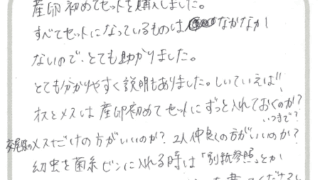 産卵初めてセットを購入しました。
すべてセットになっているものはなかなか
ないので、とても助かりました。
とても分かりやすく説明もありました。しいていえば!!
オスとメスは産卵初めてセットにずっと入れておくのか?
いつまで?
メスだけの方がいいのか? 2人仲良くの方がいいのか?
幼虫を菌糸ビンに入れる時は「別紙参照」とか